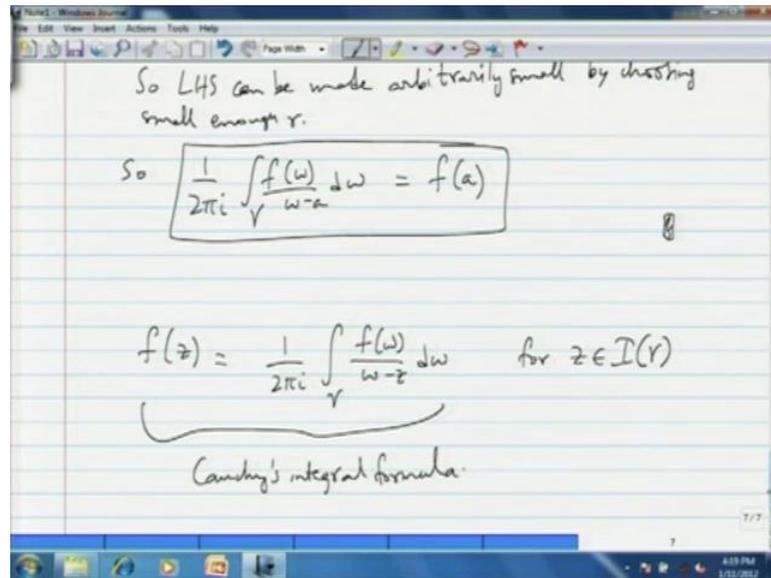 Note1 - Windows Journal
File Edit View Insert Actions Tools Help
Page Width
So LHS can be made arbitrarily small by choosing
small enough r.
So 1/2πi ∫_γ f(w)/w-a dw = f(a)
f(z) = 1/2πi ∫_γ f(w)/w-z dw for z ∈ I(γ)
Cauchy's integral formula.
7/7
7
4:19 PM
1/11/2012